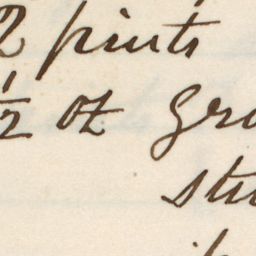 2 pints
½ oz gro
stu